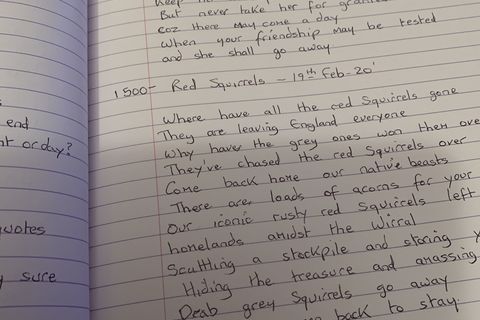 But never take her for
coz there may come a day
when your friendship may be tested
and she shall go away
1500- Red Squirrels - 19th Feb-20'
Where have all the red Squirrels gone
They are leaving England everyone
Why have the grey ones won them
They've chased the red Squirrels over
Come back home our native beasts
There are loads of acorns for your
Our iconic rusty red Squirrels left
homelands amidst the Wirral
Scuttling a stockpile and storing
Hiding the treasure and
Drab grey Squirrels go away
back to stay.
end
or day?
quotes
sure